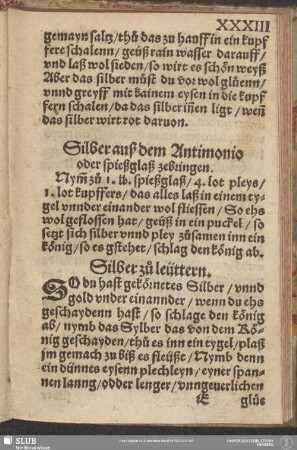 XXXIII
gemayn saltz/thů das zu hauff in ein kupf
fere schalenn/geüß rain wasser darauff/
vnd laß wol sieden/so wirt es schön weyß
Aber das silber můst du vor wol glüenn/
vnnd greyff mit kainem eysen in die kupf
fern schalen/da das silber iñen ligt/weñ
das silber wirt rot daruon.
Silber auß dem Antimonio
oder spießglaß zebringen.
Nym̃ zů 1. lb. spießglaß/4. lot pleys/
1. lot kupffers/das alles laß in einem ty-
gel vnnder einander wol fliessen/So ehs
wol geflossen hat/geüß in ein puckel/so
setzt sich silber vnnd pley zůsamen inn ein
könig/so es gstehet/schlag den könig ab.
Silber zů leüttern.
SO du hast gekönnetes Silber/vnnd
gold vnder einannder/wenn du ehs
geschaydenn hast/so schlage den könig
ab/nymb das Sylber das von dem Kö-
nig geschayden/thů es inn ein tygel/plaß
jm gemach zu biß es fleüßt/Nymb denn
ein dünnes eysenn plechleyn/eyner span-
nen lanng/odder lenger/vnngeuerlichen
E glüe
SLUB
Wir führen Wissen.